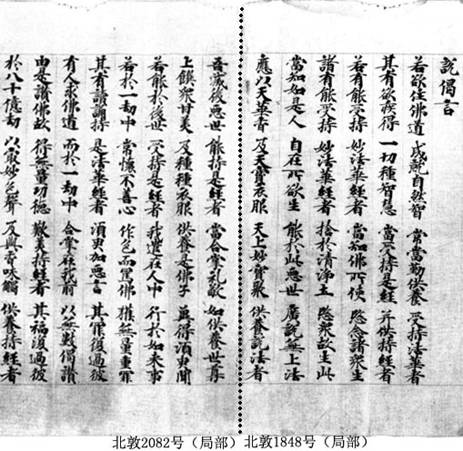 說偈言
若欲住佛道 成就自然智 常當勤供養 受持法華者
其有欲疾得 一切種智慧 當受持是經 并供持經者
若有能受持 妙法華經者 當知佛所使 愍念諸衆生
諸有能受持 妙法華經者 捨於清淨土 愍衆故生此
當知如是人 自在所欲生 能於此惡世 廣說無上法
應以天華香 及天寶衣服 天上妙寶聚 供養說法者
吾滅後惡世 能持是經者 當合掌礼敬 如供養世尊
上饌衆甘美 及種種衣服 供養是佛子 冀得須臾聞
若能於後世 受持是經者 我遣在人中 行於如來事
若於一劫中 常懷不善心 作色而罵佛 獲無量重罪
其有讀誦持 是法華經者 須臾加惡言 其罪復過彼
有人求佛道 而於一劫中 合掌在我前 以無數偈讚
由是讚佛故 得無量功德 歎美持經者 其福復過彼
於八十億劫 以最妙色聲 及與香味觸 供養持經者
北敦2082号（局部） 北敦1848号（局部）